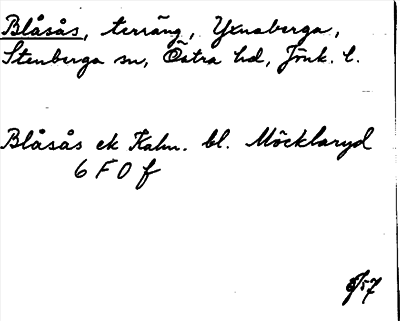 Blåsås, terräng, Yxnaberga,
Stenberga sn, Östra hd, Jönk. l.
Blåsås ek Kalm. bl. Möcklaryd
6 F 0 f